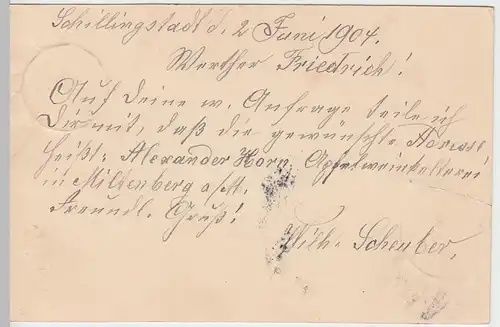 Schillingstadt d. 2 Juni 1904.
Werther Friedrich!
Auf Deine w. Anfrage teile ich
Dir mit, daß die gewünschte Adresse
heißt: Alexander Horn, Apfelweinkellerei
in Miltenberg a/M.
Freundl. Gruß!
Wilh. Scheuber.